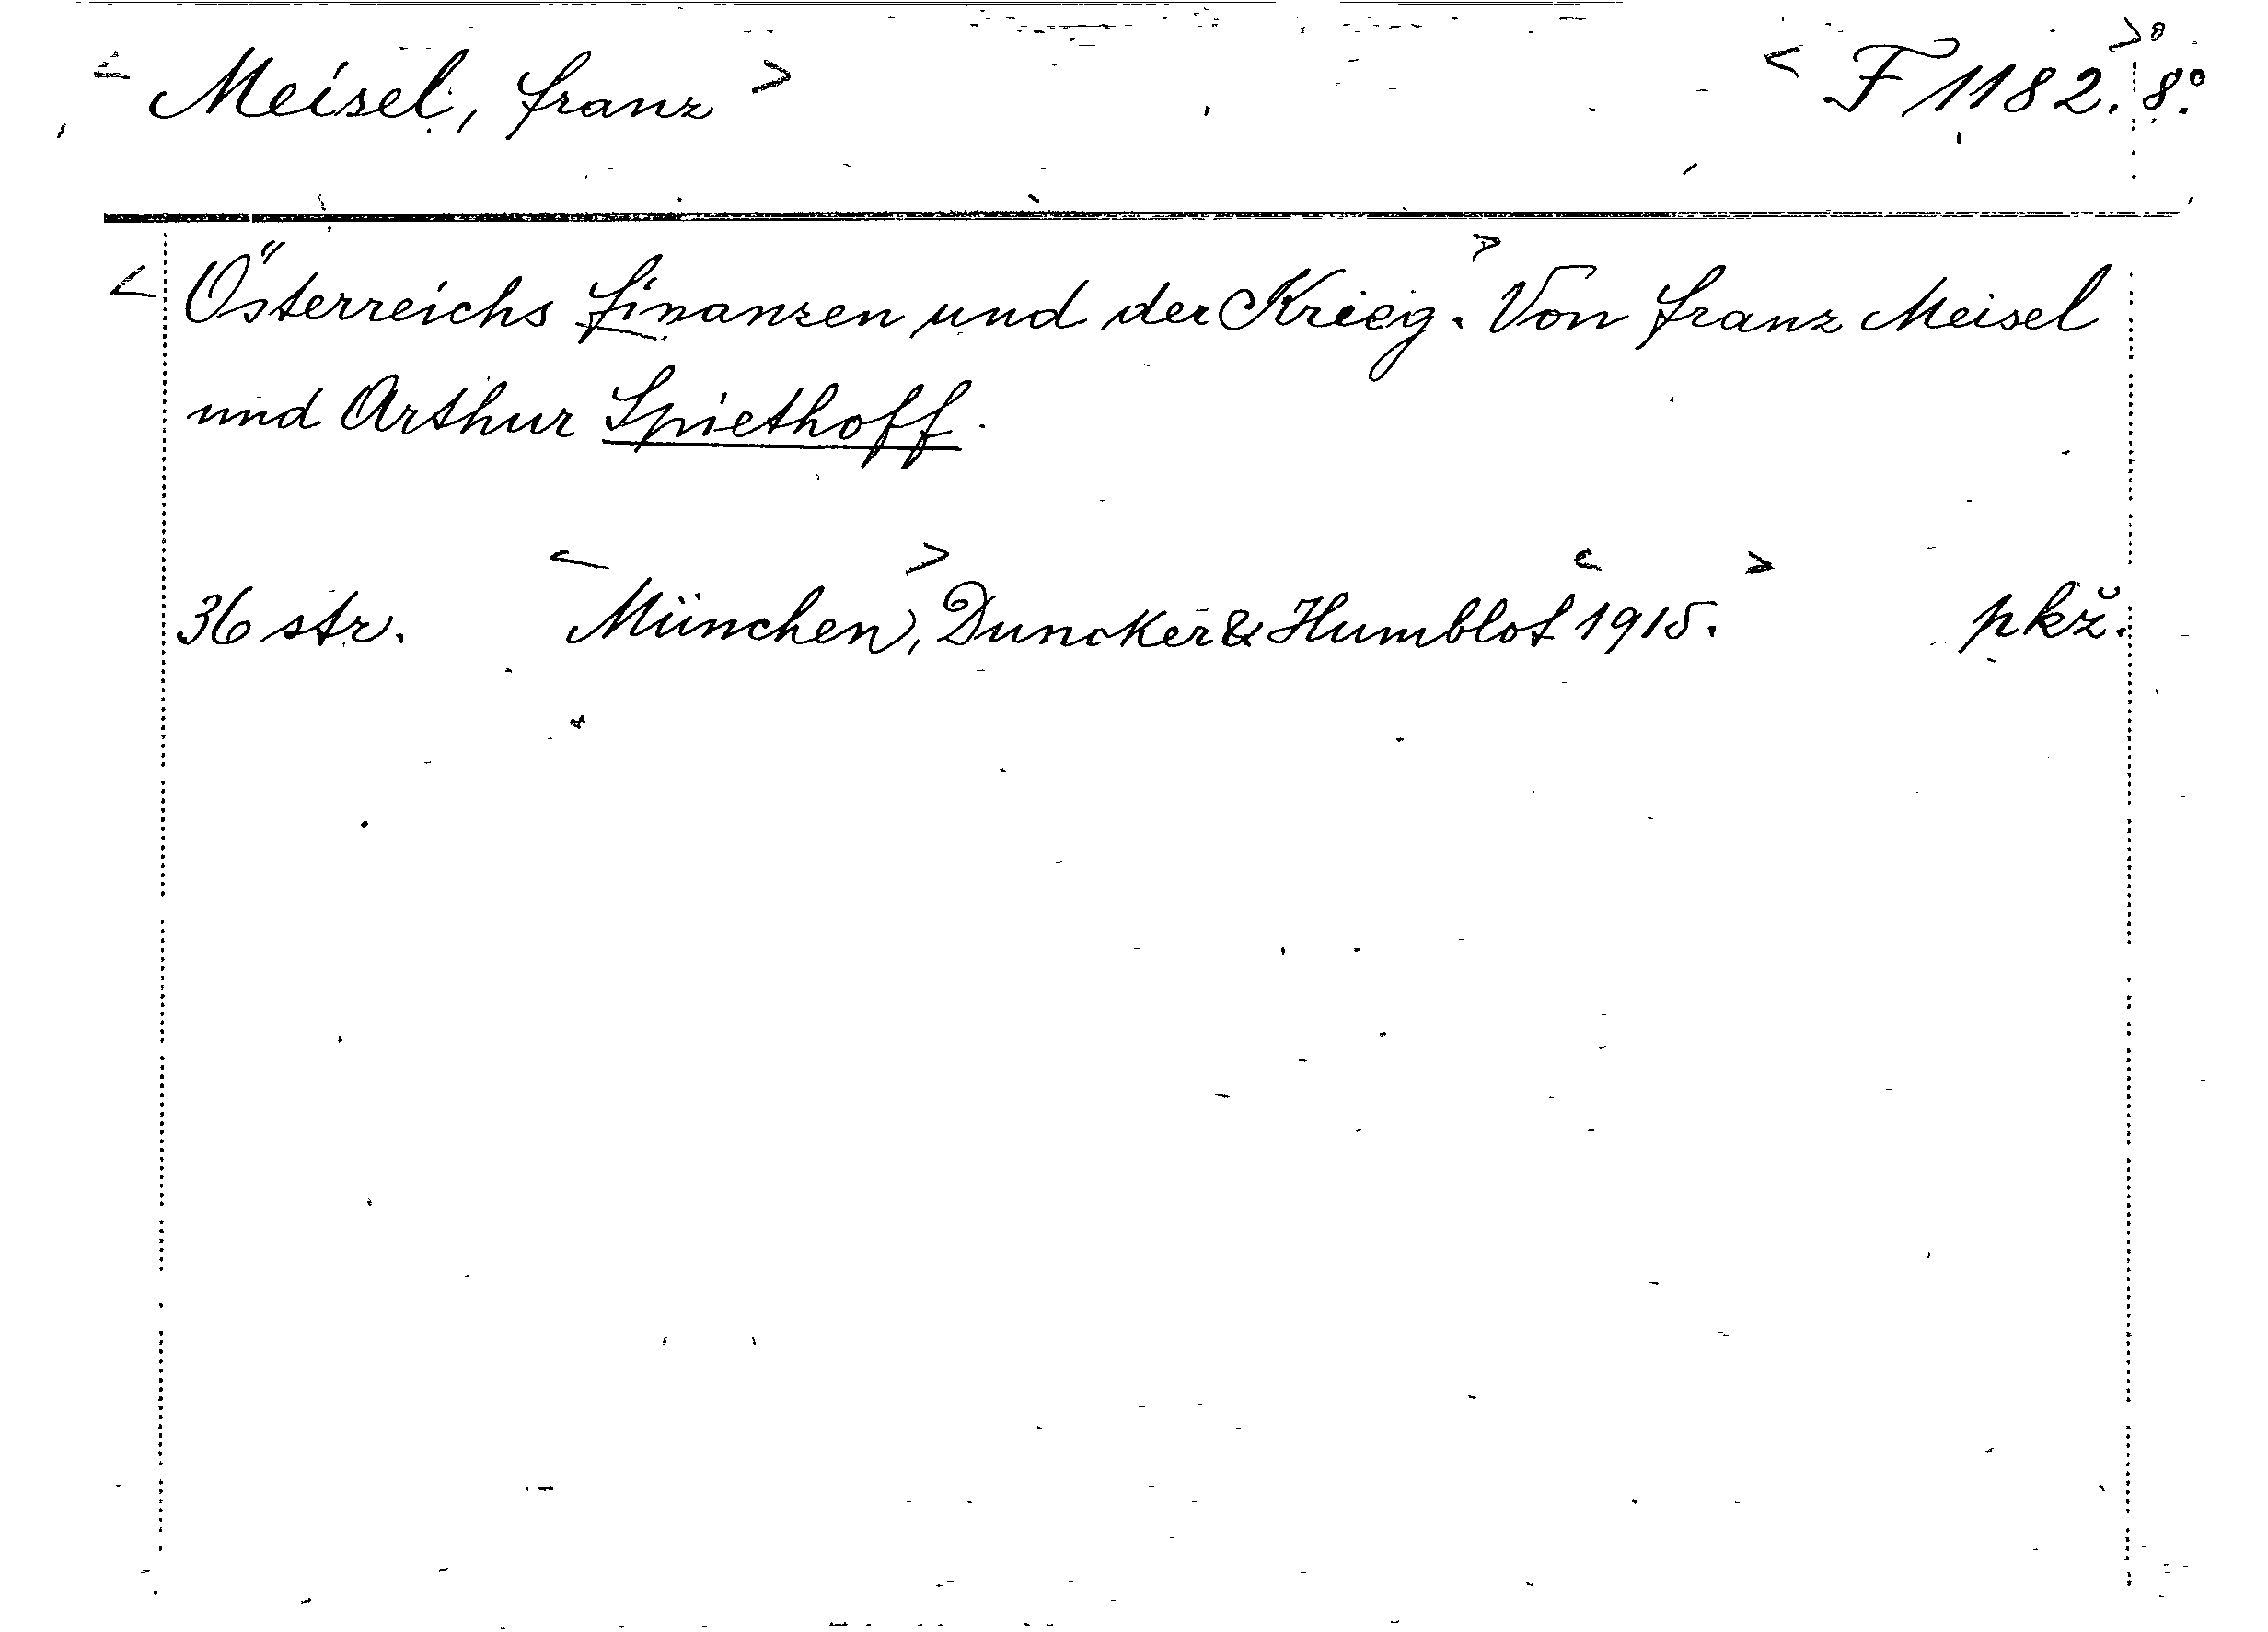 < Meisel, Franz > < F 1182. 8°. >
< Österreichs Finanzen und der Krieg. > Von Franz Meisel
und Arthur Spiethoff.
36 str. < München, > Duncker & Humblot < 1915. > pkž.